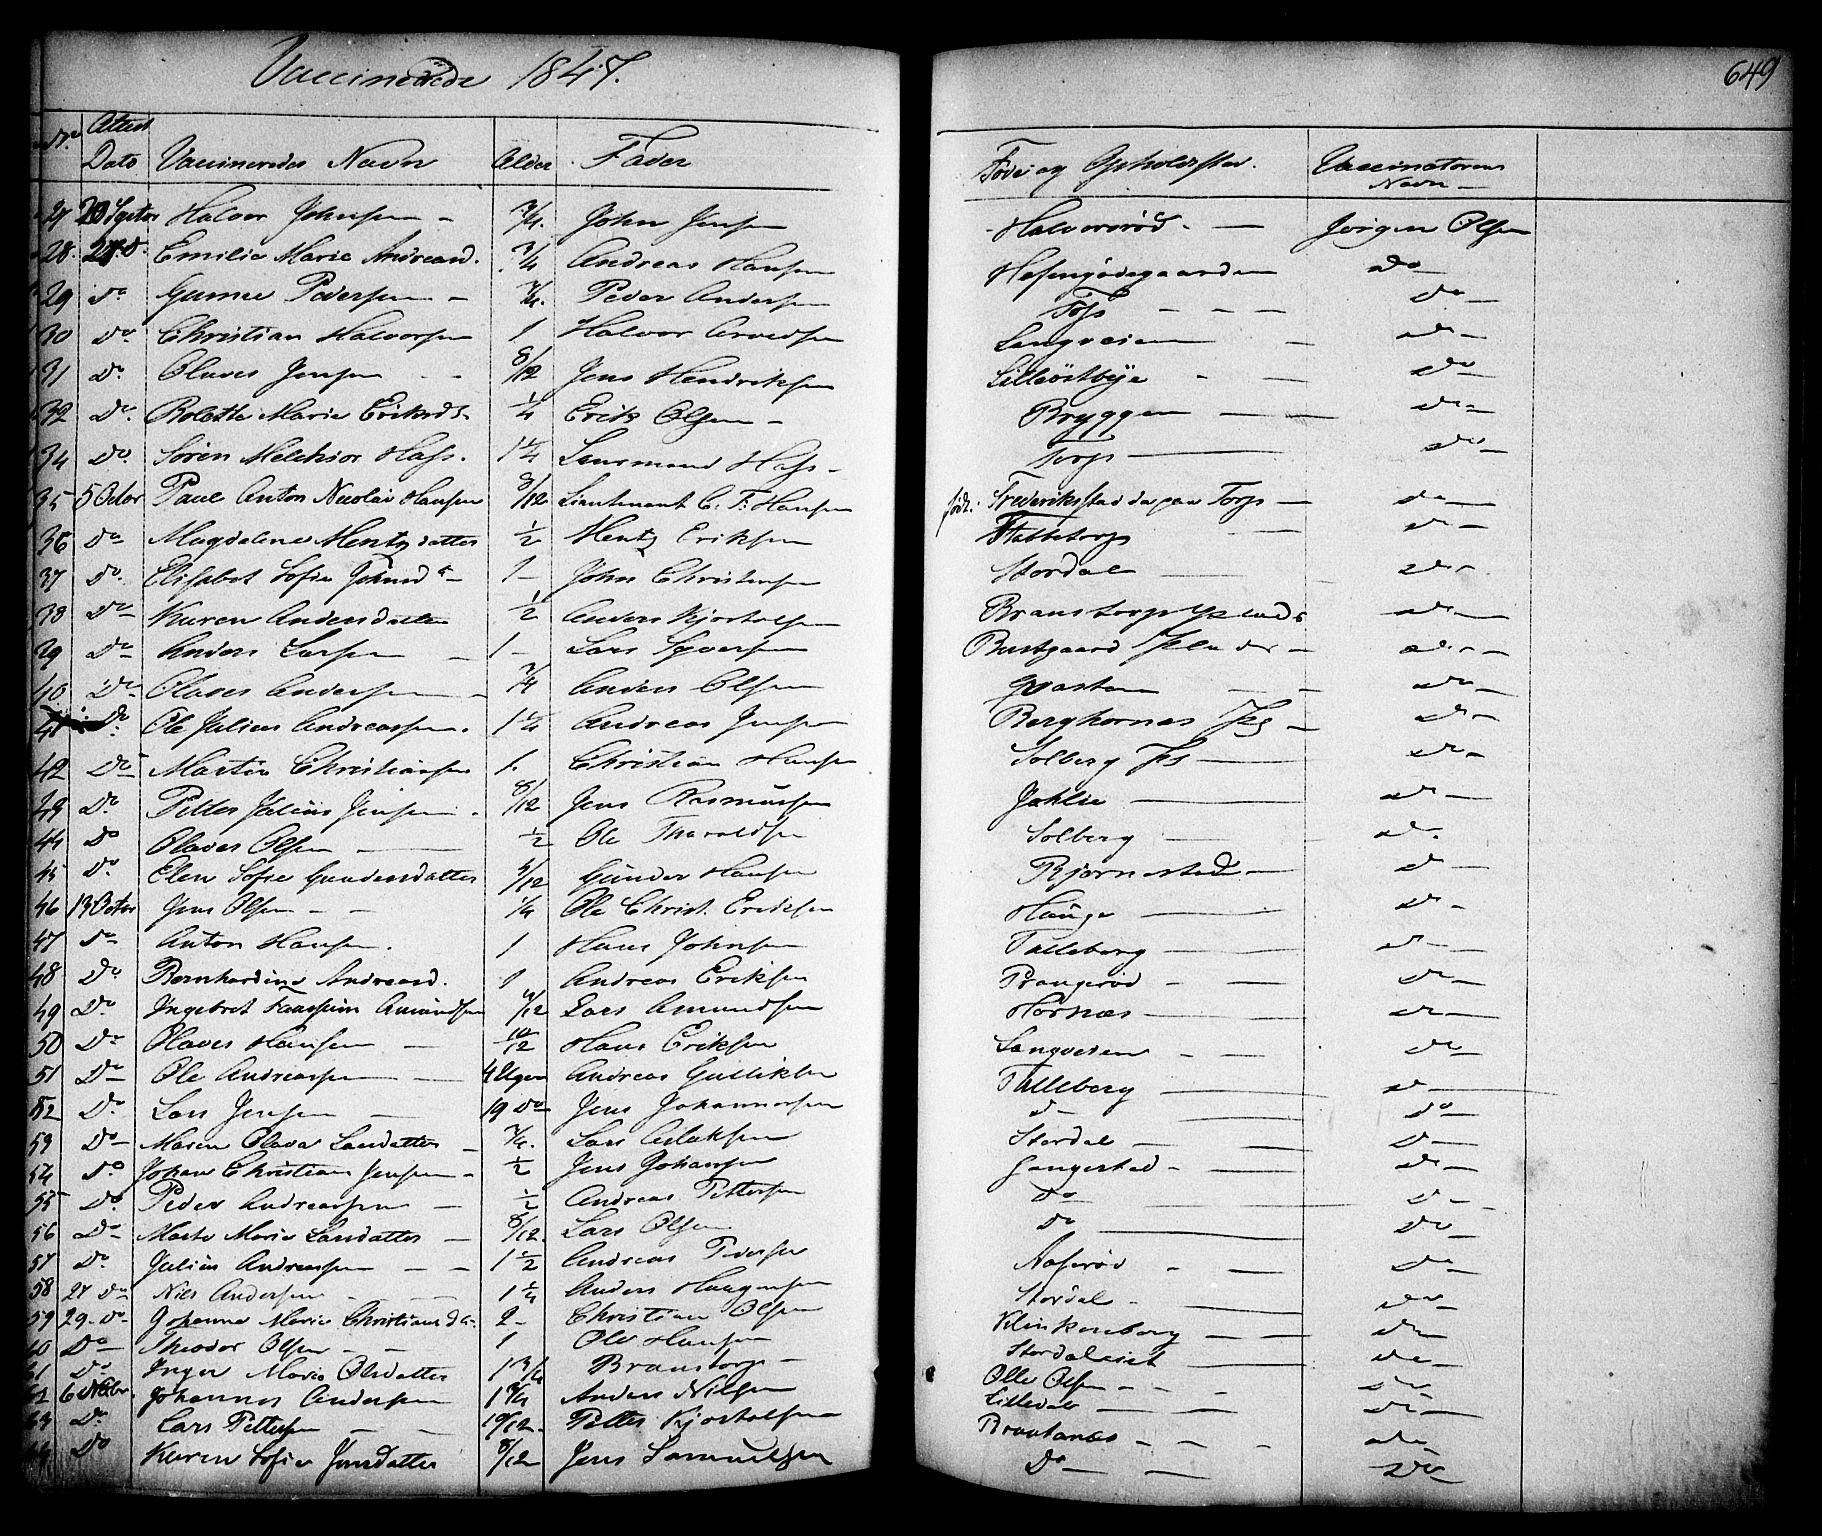 Vaccinerede 1847.
649
No. Attest Dato Vaccineredes Navn Alder Fader Føde og Opholdssted. Vaccinatorens Navn
27 20 Septbr Halvor Johnsen - 3/4. John Jensen Halvorsrød. - Jørgen Olsen
28. 27 do. Emilie Marie Andreasd. 3/4 Andreas Hansen do
29 do Gunne Pedersen - 3/4. Peder Andersen Torp do
30 do Christian Halvorsen 1 Halvor Arvedsen Langveien do
31 do. Olaves Jensen 8/12 Jens Hendriksen Lilleöstbye do
32 Do. Bolette Marie Eriksd. 1/4 Erik Olsen - Bryggen do
34 do. Sören Melchior Hass. 1 1/4 Lensmand Hass - Torp do
35 5 Octbr Paul Anton Nicolai Hansen 8/12 Lieutenant C. F. Hansen födt. Frederiksstad da paa Torp - do
36 do Magdalene Mentzdatter 1/2 Mentz Eriksen do
37 do. Elisabet Sofie Johnsd. 1 - John Christensen Stordal do
38 Do Karen Andersdatter 1/2 Anders Kjostolsen Branstorp Plads do
39 Do Anders Larsen - 1 - Lars Syversen Bustgaard do
40 Do Olaves Andersen 3/4 Anders Olsen do
41 do. Ole Julius Andreassen. 1 1/4 Andreas Jensen do
42 Do Martin Christiansen 1. Christian Hansen Solberg do
43 Do Petter Julius Jensen. 8/12 Jens Rasmussen do
44 Do Olaves Olsen 1/2 Ole Tharaldsen Solberg do.
45 Do. Elen Sofie Gundersdatter /12 Gunder Hansen Bjørnestad do
46 13 Octbr Jens Olsen - - 1/4 Ole Christ. Eriksen Hauge do
47 do Anton Hansen. 1 Hans Johnsen Talleberg do
48 Do Bernhardine Andreasd. 1 Andreas Eriksen Prangerød do
49 Do Ingebret Amundsen /12 Lars Amundsen Hornæs do
50 Do Olaves Hansen 10/12 Hans Eriksen Langveien do
51 Do Ole Andreassen 4 Uger Andreas Gulliksen Talleberg do
52 Do. Lars Jensen 19 do Jens Johannessen do do
53 Do Maren Olava Larsdatter 3/4. Lars Aslaksen Stordal do
54 do Johan Christian Jensen - 1/2 Jens Johansen Gangestad - do
55 Do. Peder Andreassen 1/2 Andreas Pettersen Do do
56 Do Marte Marie Larsdatter 8/12. Lars Olsen do do
57 Do. Julius Andreassen 1 1/2 Andreas Pedersen do
58 27 do Nils Andersen 1 1/4 Anders Haagensen Stordal do
59 29. do Johanne Marie Christiansd. 2 - Christian Olsen Klinkenberg do
60 Do Theodor Olsen 1 Ole Hansen do
61 Do Inger Marie Olsdatter 1 3/4 Branstorp - Olle Olsen do
62 6 Novbr. Johannes Andersen 1 3/4 Anders Nilsen Lilledal do
63 Do Lars Pettersen 10/12. Petter Kjostolsen Brautanæs do
64 Do Karen Sofie Jensdatter 8/12 Jens Samuelsen Do do